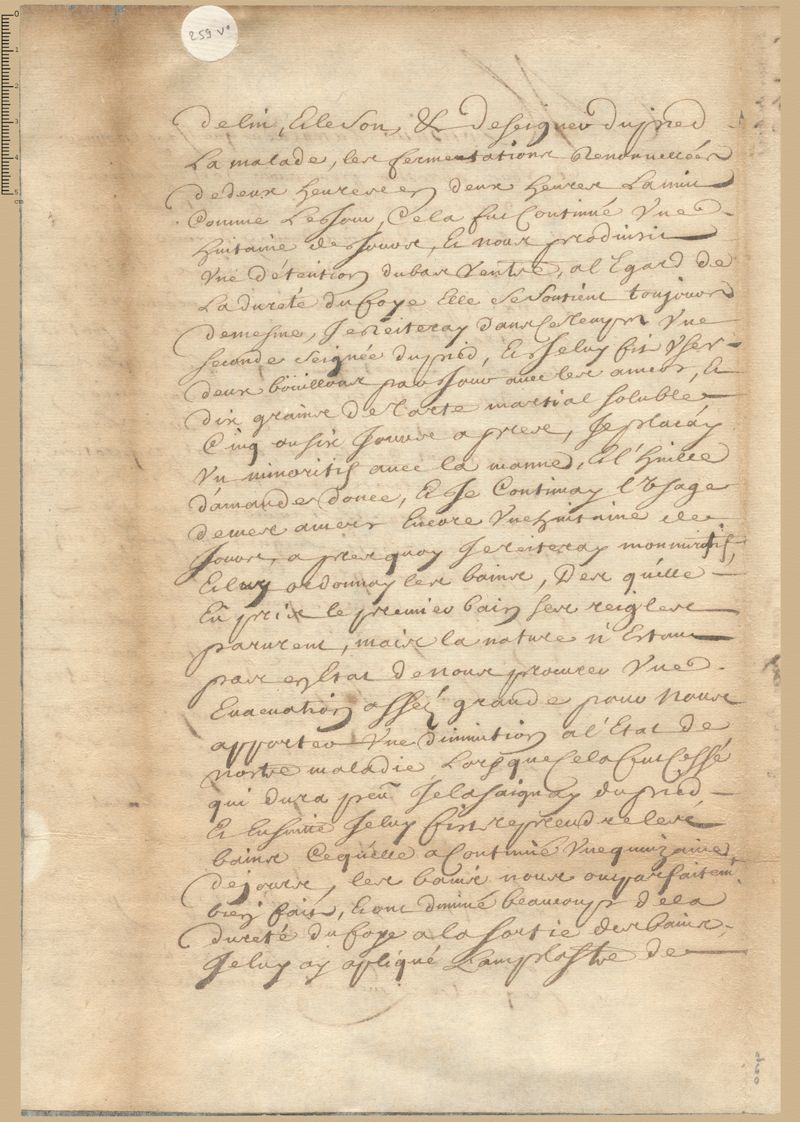 259 v°
de lin, et le son, & de seigner du pied
La malade, les fermentations Renouvellées
de deux heures en deux heures La nuit
Comme Le Jour, Cela fut Continué Une
huitaine de Jours, et nous produisit
Une détention du bas Ventre, a l'Egard de
La dureté du foye Elle se soutient toujours
de mesme, Je reiteray dans ce temps Une
seconde seignée du pied, et Je luy fis User
deux boüillons par Jour avec les amers, et
dix grains de tarte martial soluble,
Cinq ou six Jours apres, Je plaçay
Un minoritif avec la manne, et l'huille
d'amande douce, et Je Continuay l'Usage
de mes amers Encore Une huitaine de
Jours, apres quoy Je reiteray mon minoritif,
et luy ordonnay les bains, Des qu'elle
Eu pris le premier bain ses reigles
parurent, mais la nature n'Estant
pas en Etat de nous procurer Une
Evacuation assés grande pour nous
apporter Une diminution a l'Etat de
nostre maladie Lorsque Cela fut Cessé
qui dura peu Je la saignay du pied
et Ensuitte Je luy fis reprendre les
bains Ce qu'elle a Continué Une quinzaine
de jours, les bains nous ont parfaitem.
bien fait, et ont diminé beaucoup de la
dureté du foye a la sortie des bains,
Je luy ay apliqué L'amplastre de
260